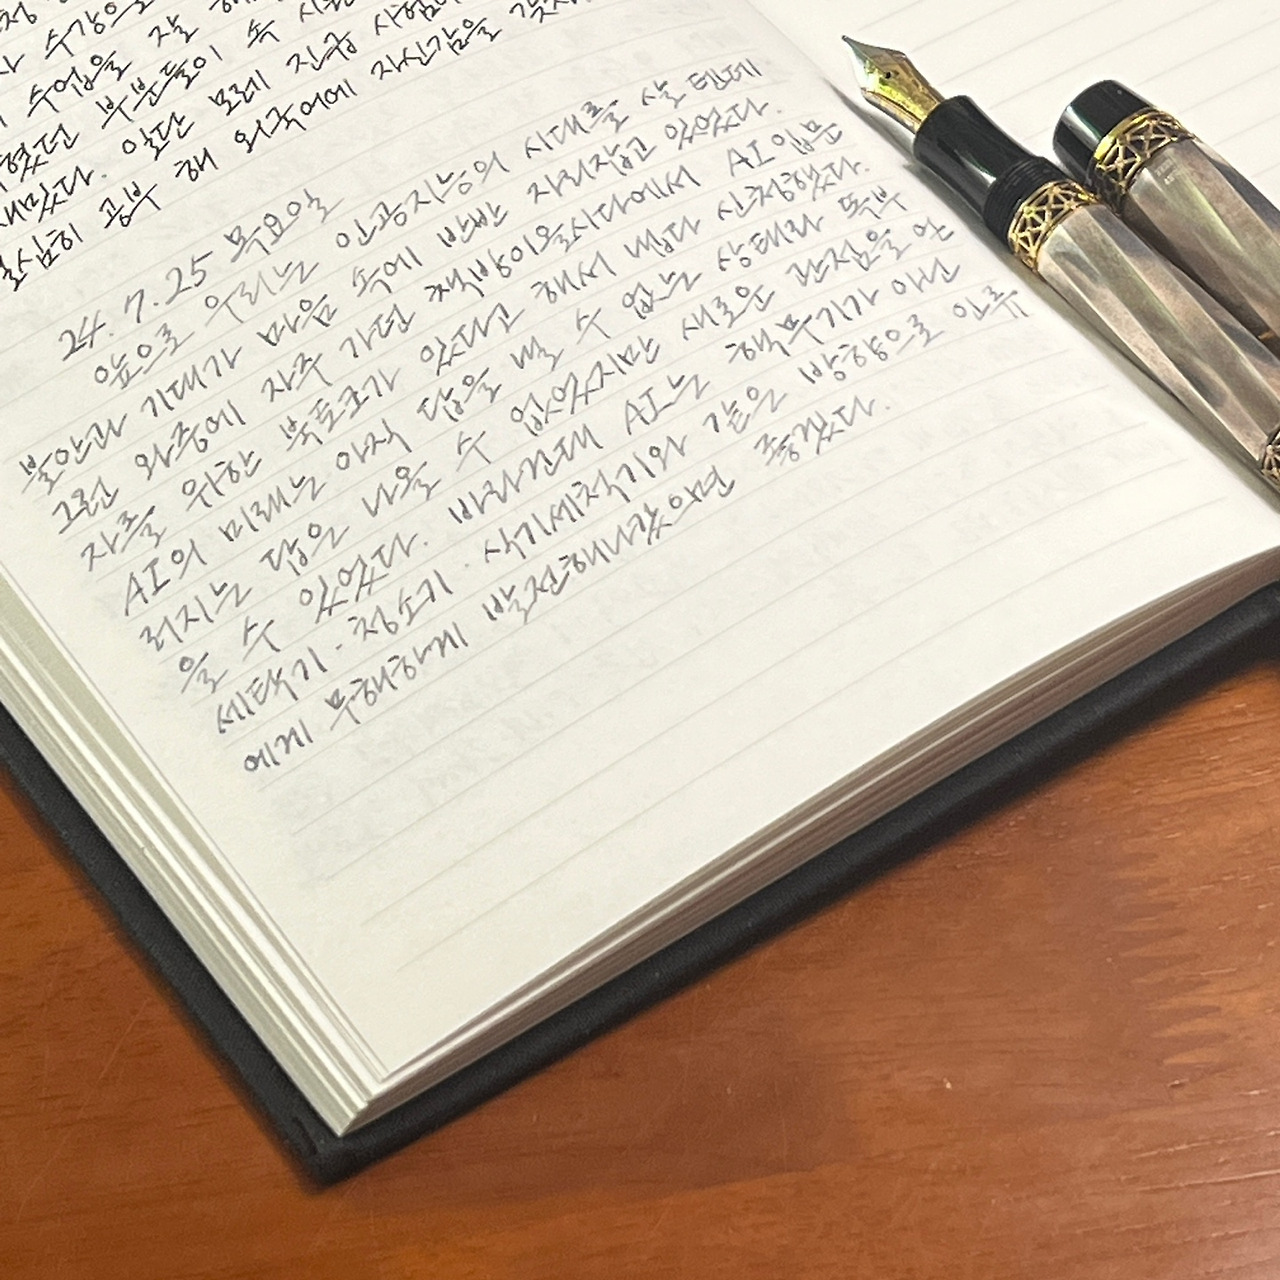 사 수강으로
수업을 잘
했던 부분들이 속 시원
내렸다. 일단 모레 진급 시험
열심히 공부 해 외국어에 자신감을
24. 7. 25 목요일
앞으로 우리는 인공지능의 시대를 살 텐데
불안과 기대가 마음 속에 반반 자리잡고 있었다.
그런 와중에 자주 가던 책방이올시다에서 AI 입문
자를 위한 북토크가 있다고 해서 냅다 신청했다.
AI의 미래는 아직 답을 낼 수 없는 상태라 똑부
러지는 답은 나올 수 없었지만 새로운 관점을 얻
을 수 있었다. 바라건대 AI는 핵무기가 아닌
세탁기·청소기·식기세척기와 같은 방향으로 인류
에게 무해하게 발전해나갔으면 좋겠다.